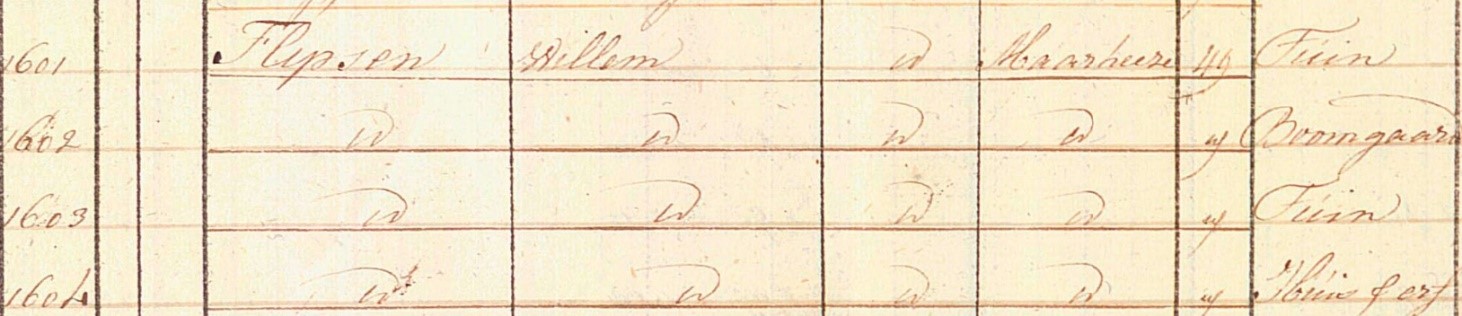 1601 Flipsen Willem id Maarheeze Tuin
1602 id id id id Boomgaard
1603 id id id id Tuin
1604 id id id id Huis & erf